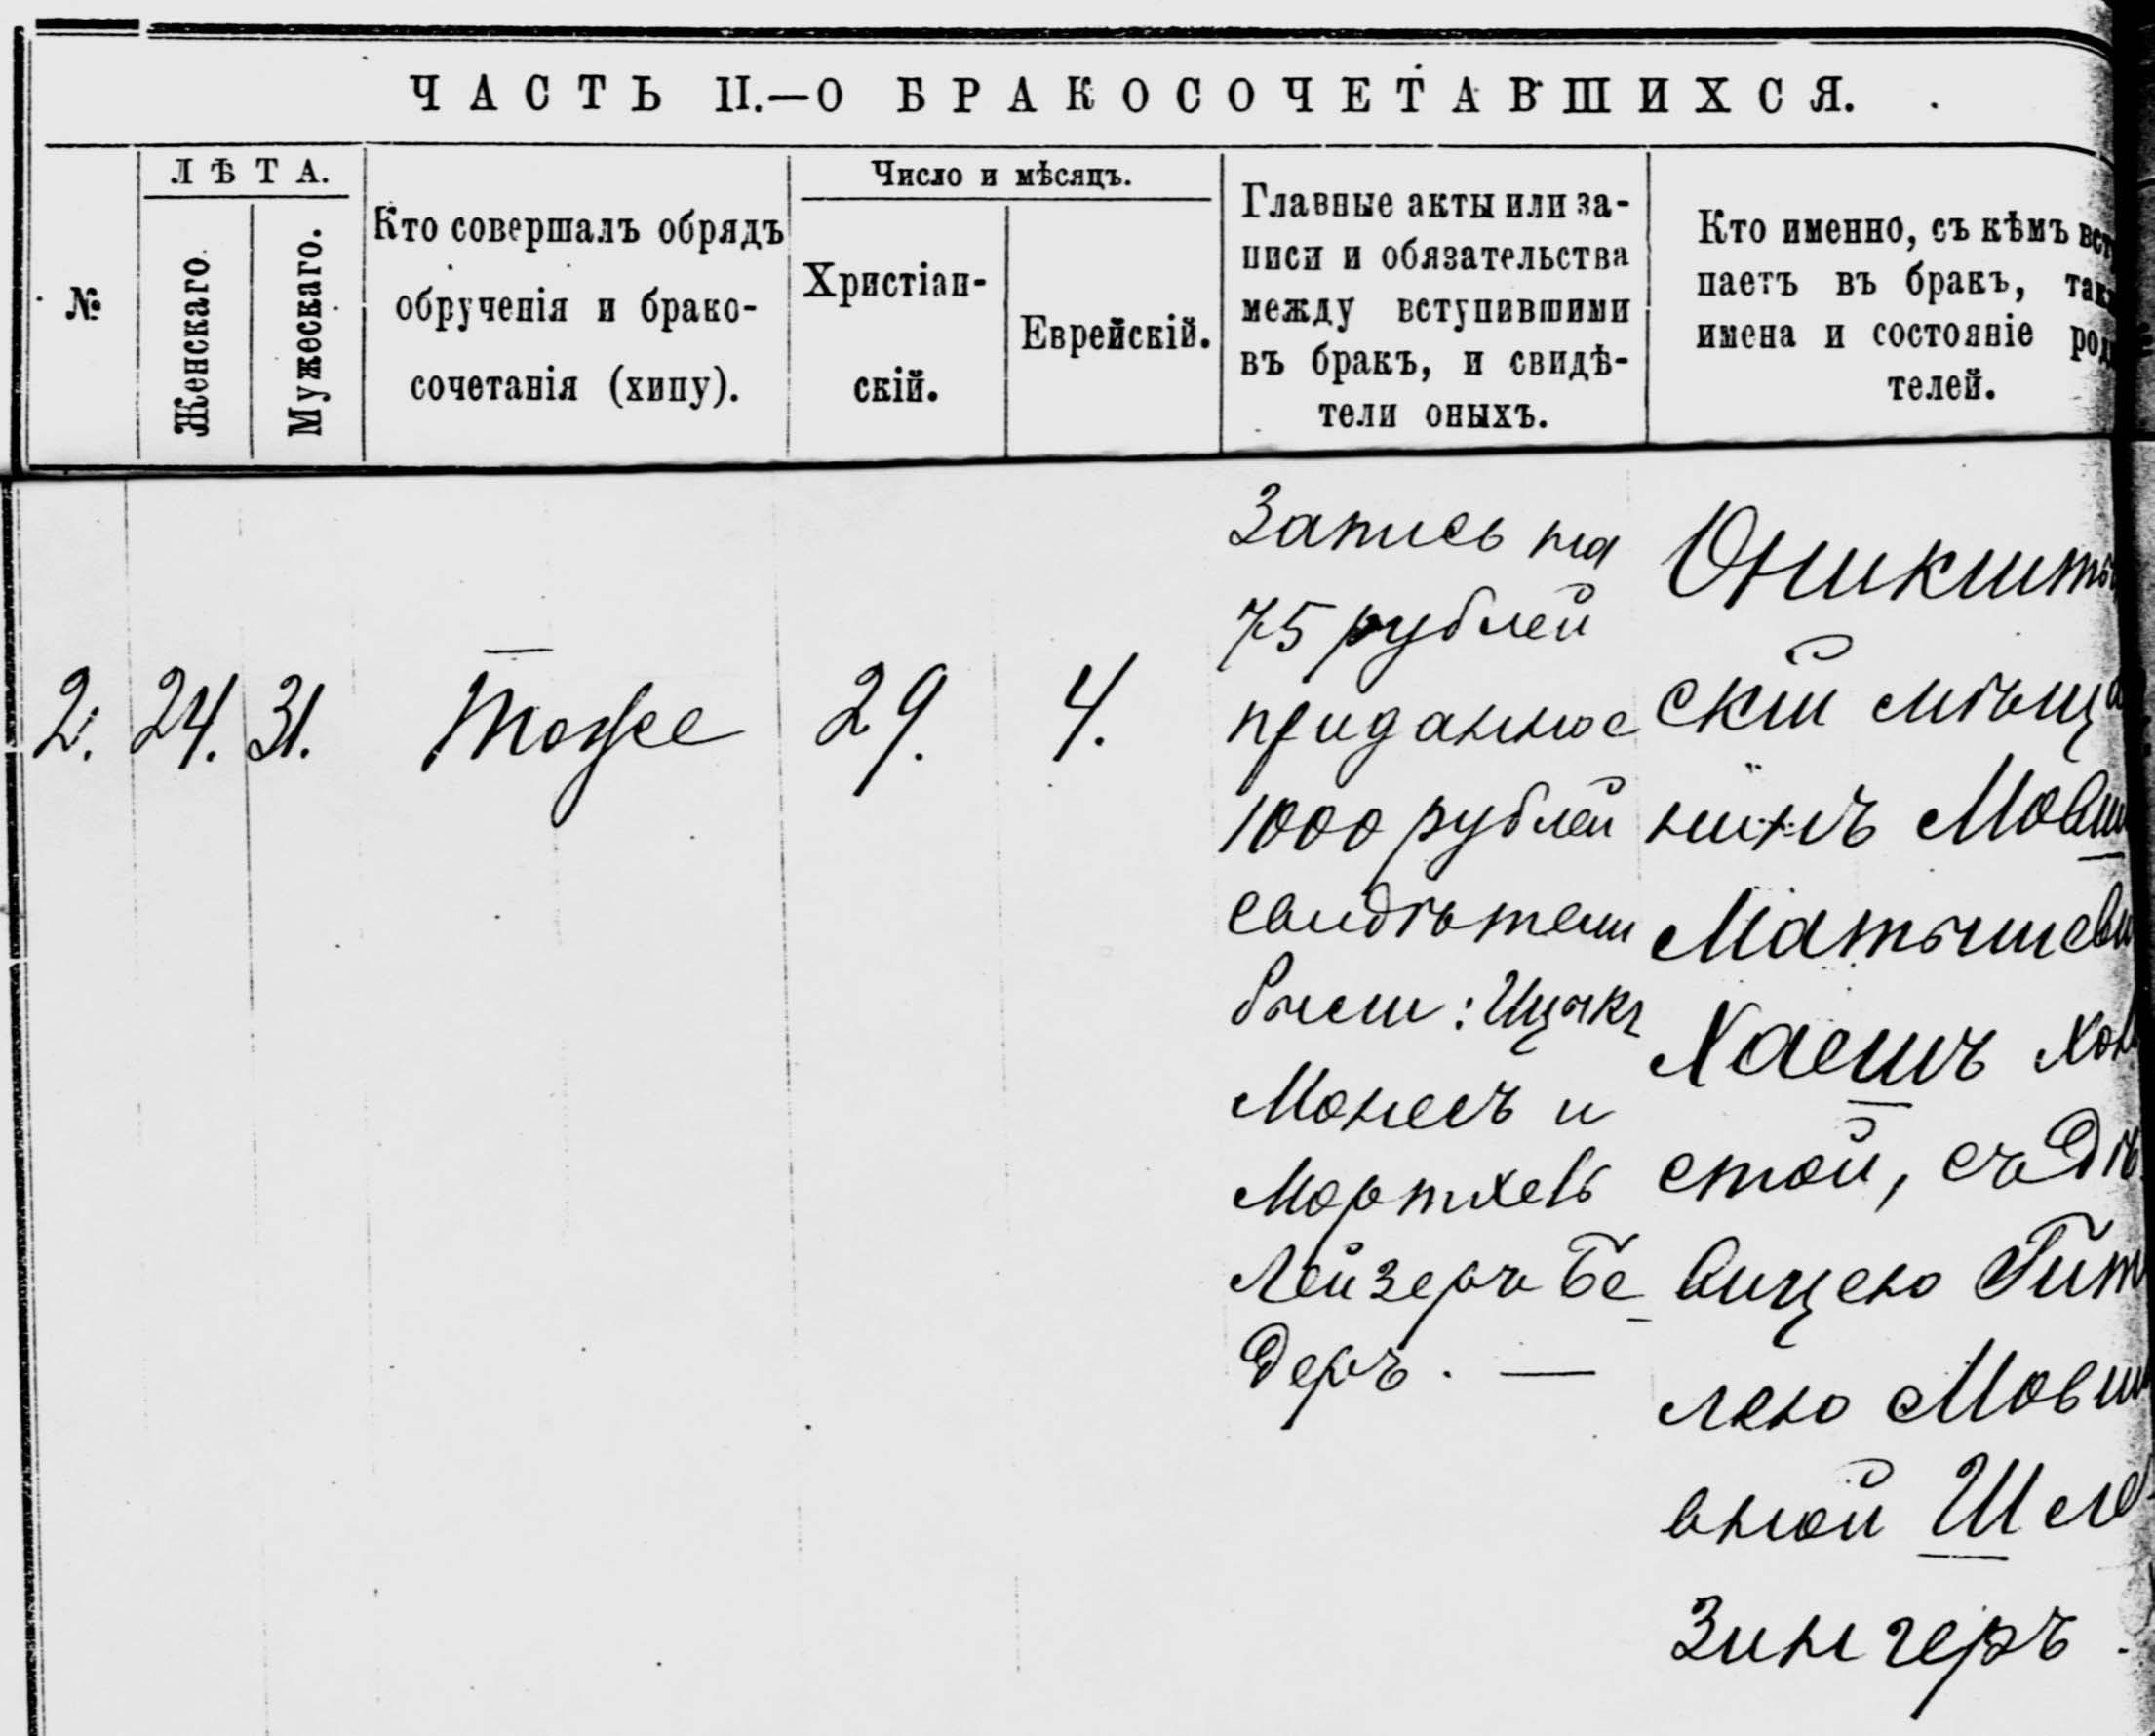 ЧАСТЬ II.—О БРАКОСОЧЕТАВШИХСЯ.
№
ЛѢТА.
Женскаго.
Мужескаго.
Кто совершалъ обрядъ
обрученія и брако-
сочетанія (хипу).
Число и мѣсяцъ.
Христіан-
скій.
Еврейскій.
Главные акты или за-
писи и обязательства
между вступившими
въ бракъ, и свидѣ-
тели оныхъ.
Кто именно, съ кѣмъ вст
паетъ въ бракъ, так
имена и состояніе род
телей.
2. 24. 31. тоже 29. 4.
Запись на
75 рублей
приданное
1000 рублей
свидѣтели
были: Ицыкъ
Монесъ и
Мортхель
Лейзеръ Бе
деръ. —
Оникшты
скій мѣща
нинъ Мовш
Матышеви
Хаешъ хол
стой, съ дѣ
вицею Гит
лею Мовш
вной Шле
Зингеръ.